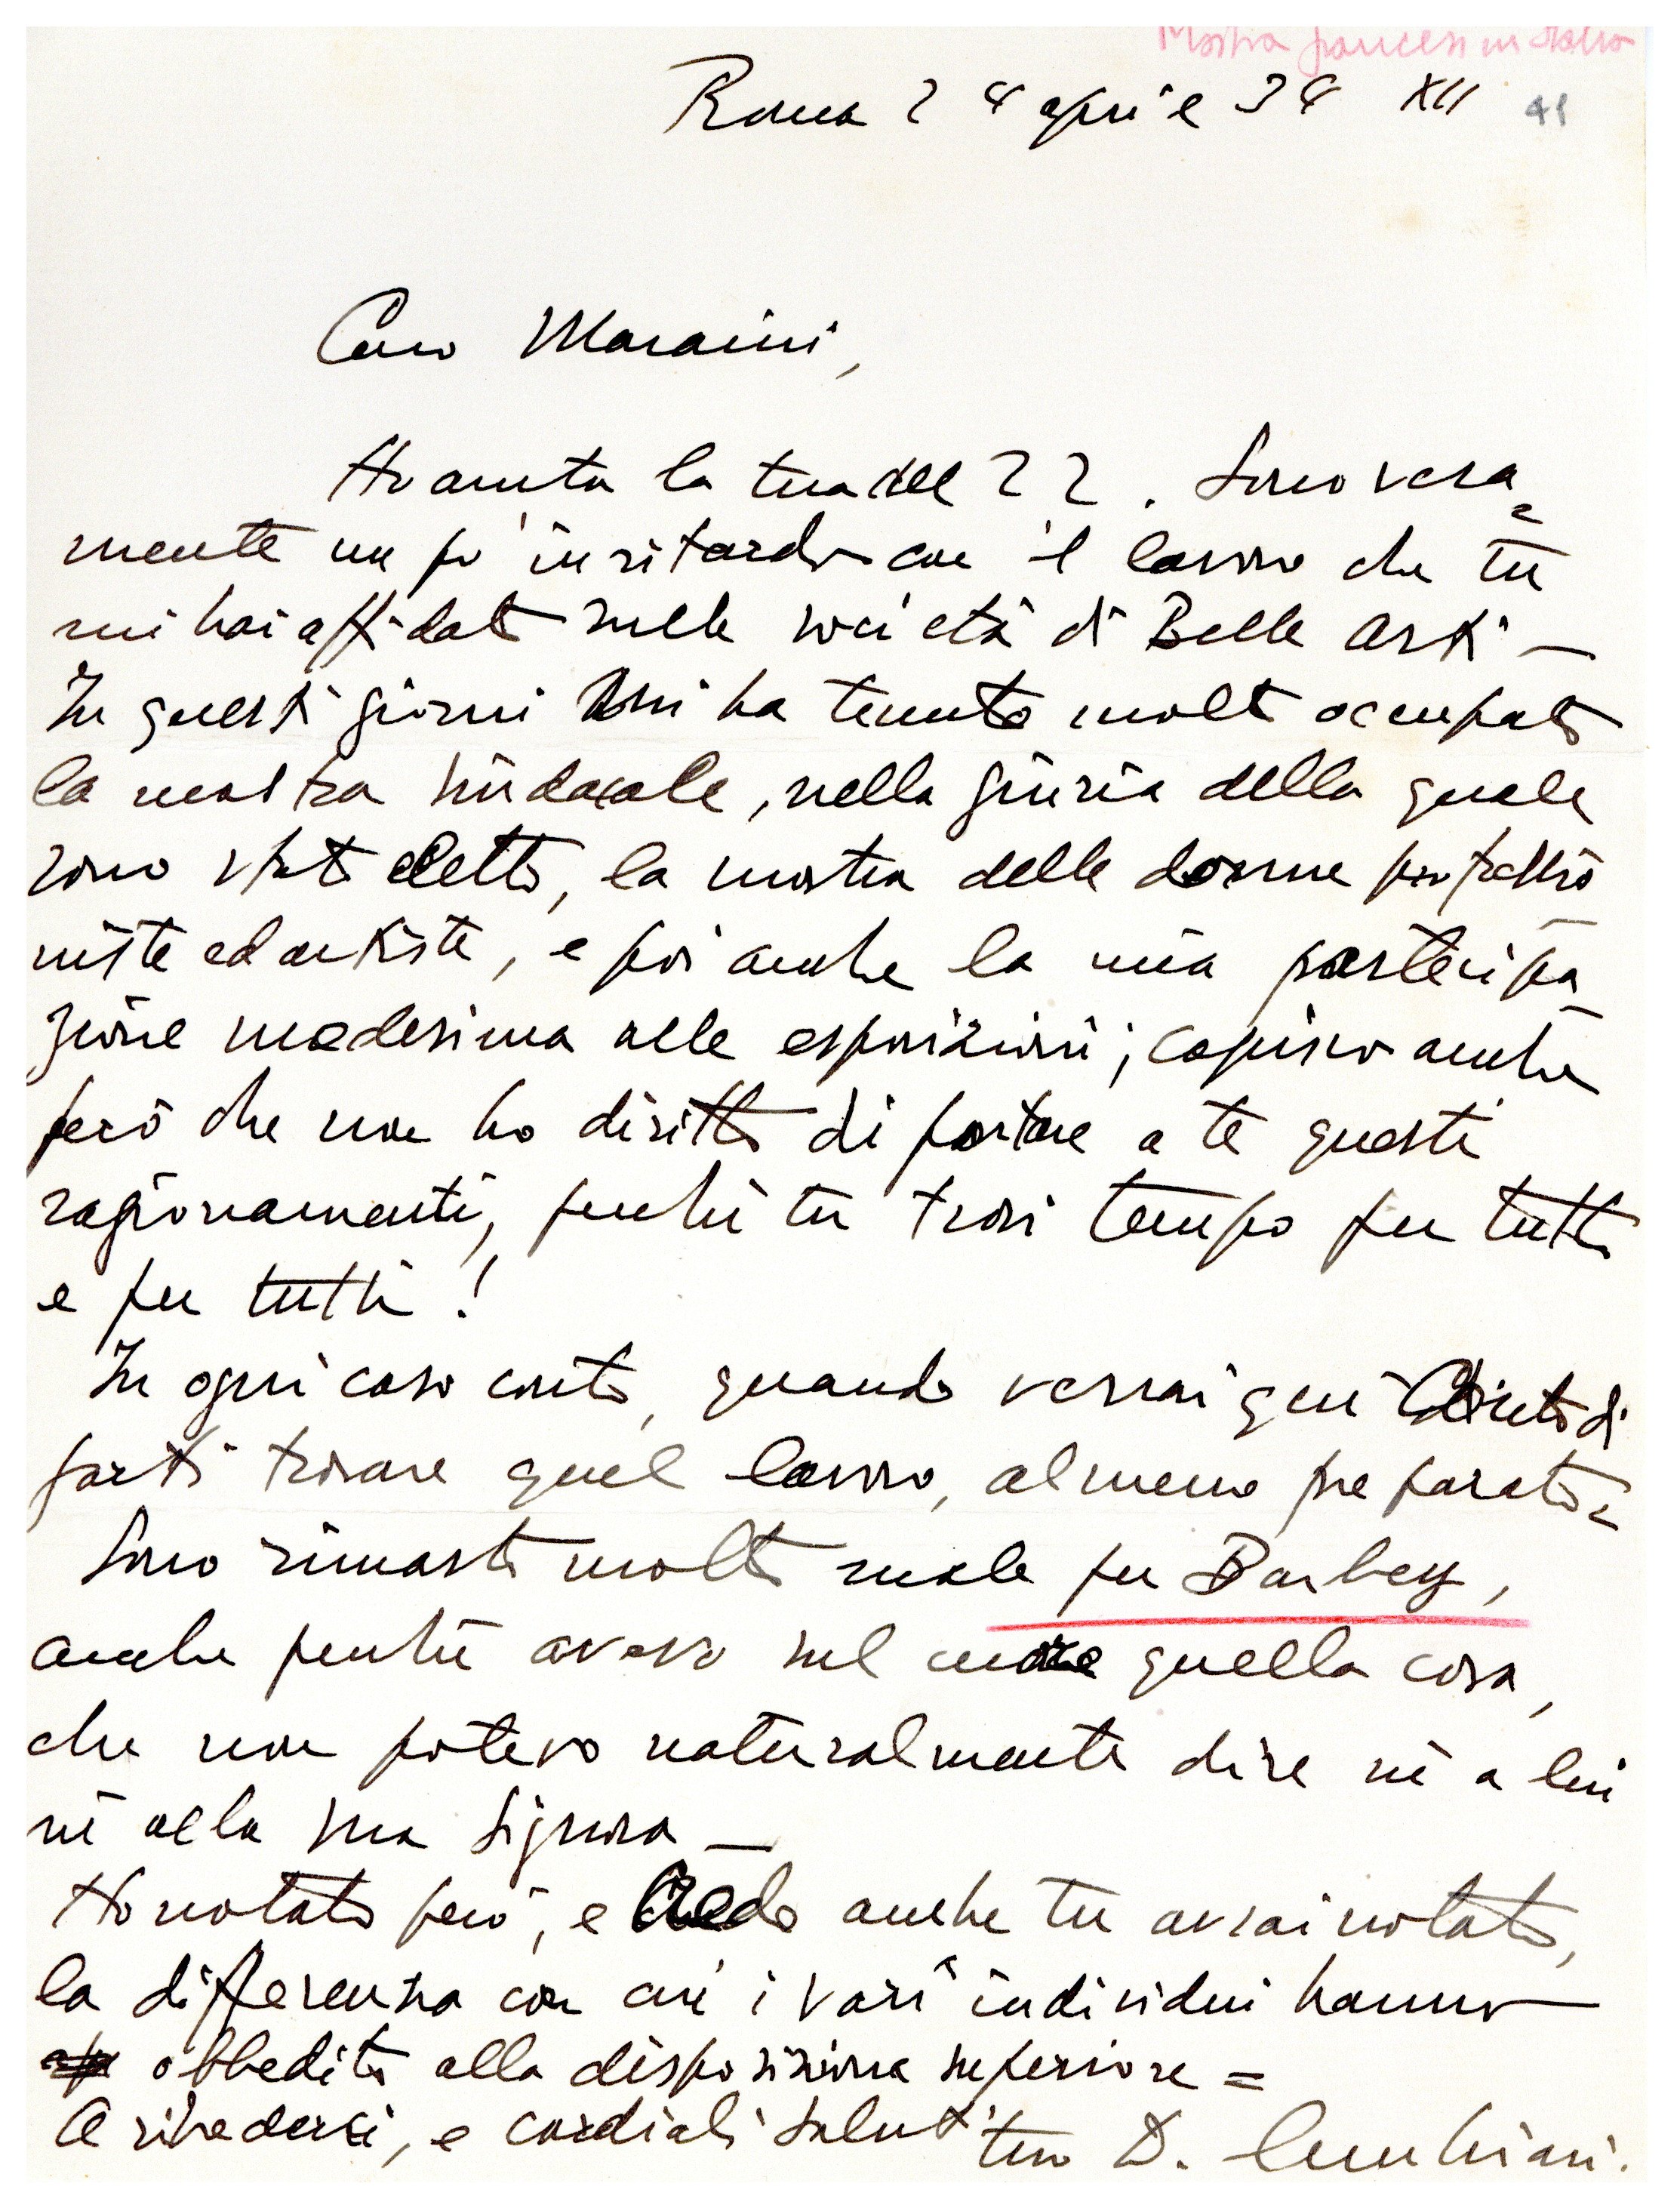 Mostra francesi in Italia
Roma 28 aprile 38 XII 41
Caro Maraini,
Ho avuta la tua del 22. Sono vera=
mente un po' in ritardo con il lavoro che tu
mi hai affidato sulle società di Belle Arti —
In questi giorni mi ha tenuto molto occupato
la mostra sindacale, nella giuria della quale
sono stato eletto, la mostra delle donne professio
niste ed artiste, e poi anche la mia partecipa
zione medesima alle esposizioni; capisco anche
però che non ho diritto di portare a te questi
ragionamenti, perché tu trovi tempo per tutto
e per tutti!
In ogni caso conto, quando verrai qui di
farti trovare quel lavoro, almeno preparato=
Sono rimasto molto male per Barbey,
anche perché avevo sul cuore quella cosa,
che non potevo naturalmente dire nè a lui
nè alla sua Signora —
Ho notato però, e credo anche tu avrai notato,
la differenza con cui i vari individui hanno
obbedito alla disposizione superiore =
A rivederci, e cordiali saluti tuo D. Cucchiari.